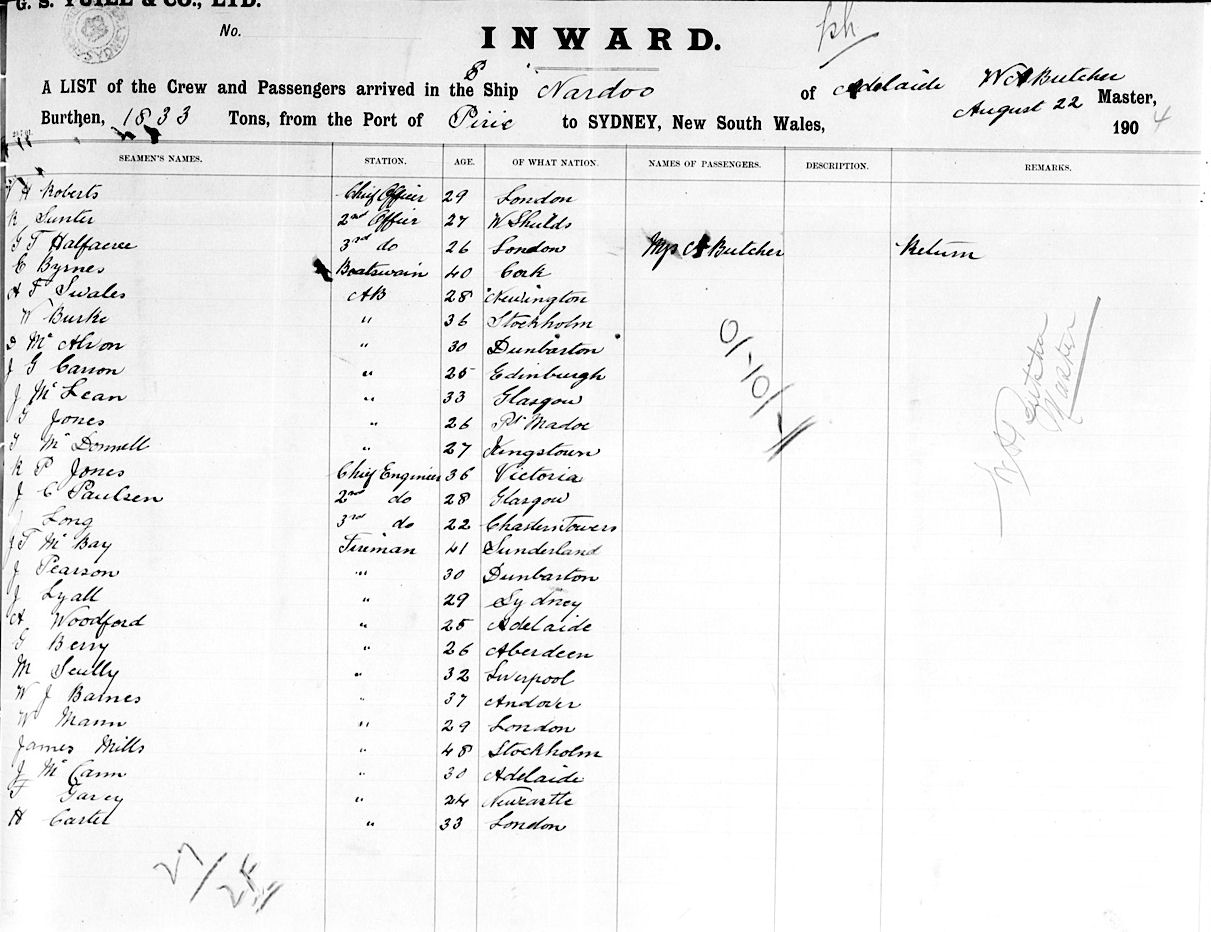 G. S. YUILL & CO., LTD.
No.
INWARD.
A LIST of the Crew and Passengers arrived in the S Ship Nardoo of Adelaide W A Butcher Master,
Burthen, 1833 Tons, from the Port of Pirie to SYDNEY, New South Wales, August 22 1904
SEAMEN'S NAMES. STATION. AGE. OF WHAT NATION. NAMES OF PASSENGERS. DESCRIPTION. REMARKS.
H Roberts Chief Officer 29 London
R Sunter 2nd Officer 27 W Shields
G T Halfacree 3rd do 26 London Mrs A Butcher Return
C Byrnes Boatswain 40 Cork
A F Swales AB 28 Newington
W Burke " 36 Stockholm
Mc " 30 Dunbarton
J G Carron " 25 Edinburgh
J McLean " 33 Glasgow
G Jones " 26 Pt Madoc
T McDonnell " 27 Kingstown
R P Jones Chief Engineer 36 Victoria
J C Paulsen 2nd do 28 Glasgow
Long 3rd do 22 Chastern Towers
J T McBay Fireman 41 Sunderland
J Pearson " 30 Dunbarton
J Lyall " 29 Sydney
A Woodford " 25 Adelaide
G Berry " 26 Aberdeen
M Scully " 32 Liverpool
W J Barnes " 37 Andover
W Mann " 29 London
James Mills " 48 Stockholm
J McCann " 30 Adelaide
T Garey " 24 Newcastle
H Carter " 33 London
W A Butcher
Master